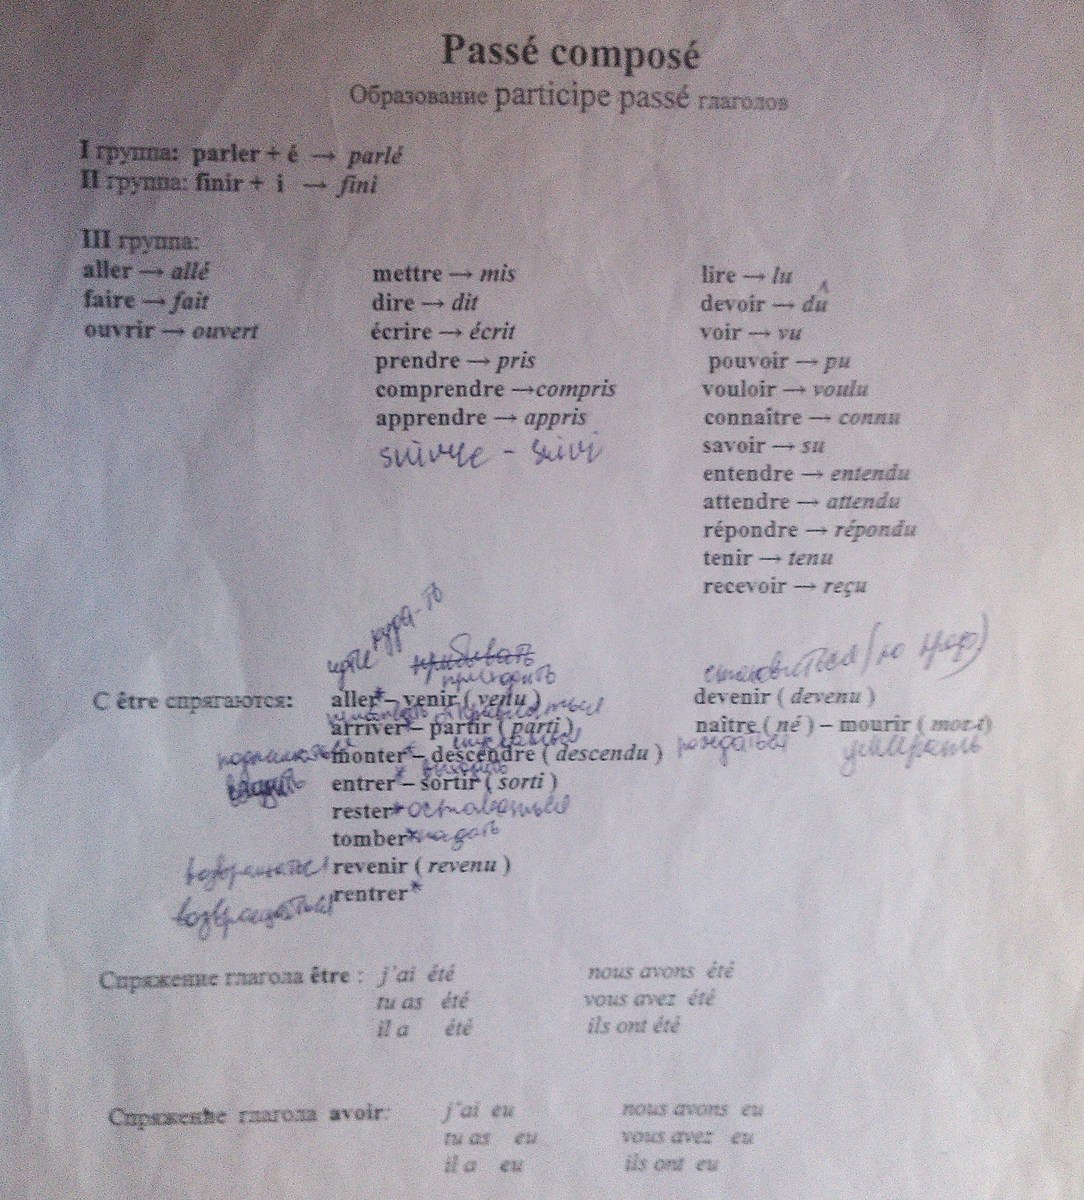 Passé composé
Образование participe passé глаголов
I группа: parler + é → parlé
II группа: finir + i → fini
III группа:
aller → allé
faire → fait
ouvrir → ouvert
mettre → mis
dire → dit
écrire → écrit
prendre → pris
comprendre →compris
apprendre → appris
suivre - suivi
lire → lu
devoir → dû
voir → vu
pouvoir → pu
vouloir → voulu
connaître → connu
savoir → su
entendre → entendu
attendre → attendu
répondre → répondu
tenir → tenu
recevoir → reçu
идти куда-то
прибывать
приходить
С être спрягаются: aller* – venir ( venu )
отправляться
arriver* – partir ( parti )
подниматься спускаться
monter* – descendre ( descendu )
входить выходить
entrer* – sortir ( sorti )
rester* оставаться
tomber* падать
возвращаться revenir ( revenu )
возвращаться rentrer*
становиться
devenir ( devenu )
naître ( né ) – mourir ( mort )
рождаться умирать
Спряжение глагола être : j'ai été nous avons été
tu as été vous avez été
il a été ils ont été
Спряжение глагола avoir: j'ai eu nous avons eu
tu as eu vous avez eu
il a eu ils ont eu